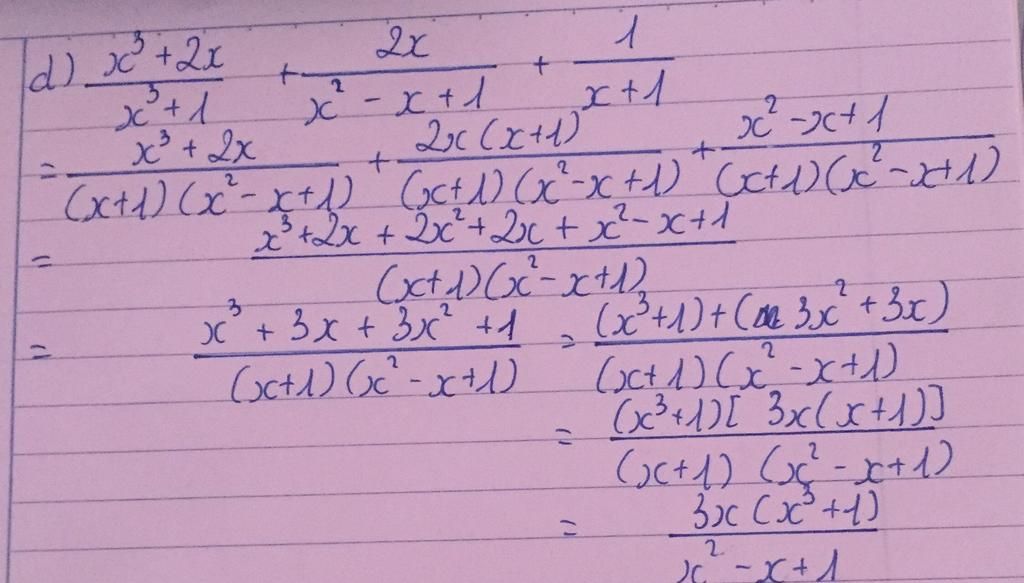 d) (x³ + 2x)/(x³ + 1) + 2x/(x² - x + 1) + 1/(x + 1)
= (x³ + 2x)/((x+1)(x² - x + 1)) + 2x(x+1)/((x+1)(x² - x + 1)) + (x² - x + 1)/((x+1)(x² - x + 1))
= (x³ + 2x + 2x² + 2x + x² - x + 1)/((x+1)(x² - x + 1))
= (x³ + 3x + 3x² + 1)/((x+1)(x² - x + 1)) = ((x³ + 1) + (3x² + 3x))/((x+1)(x² - x + 1))
= (x³ + 1)[3x(x+1)]/((x+1)(x² - x + 1))
= 3x(x³ + 1)/(x² - x + 1)